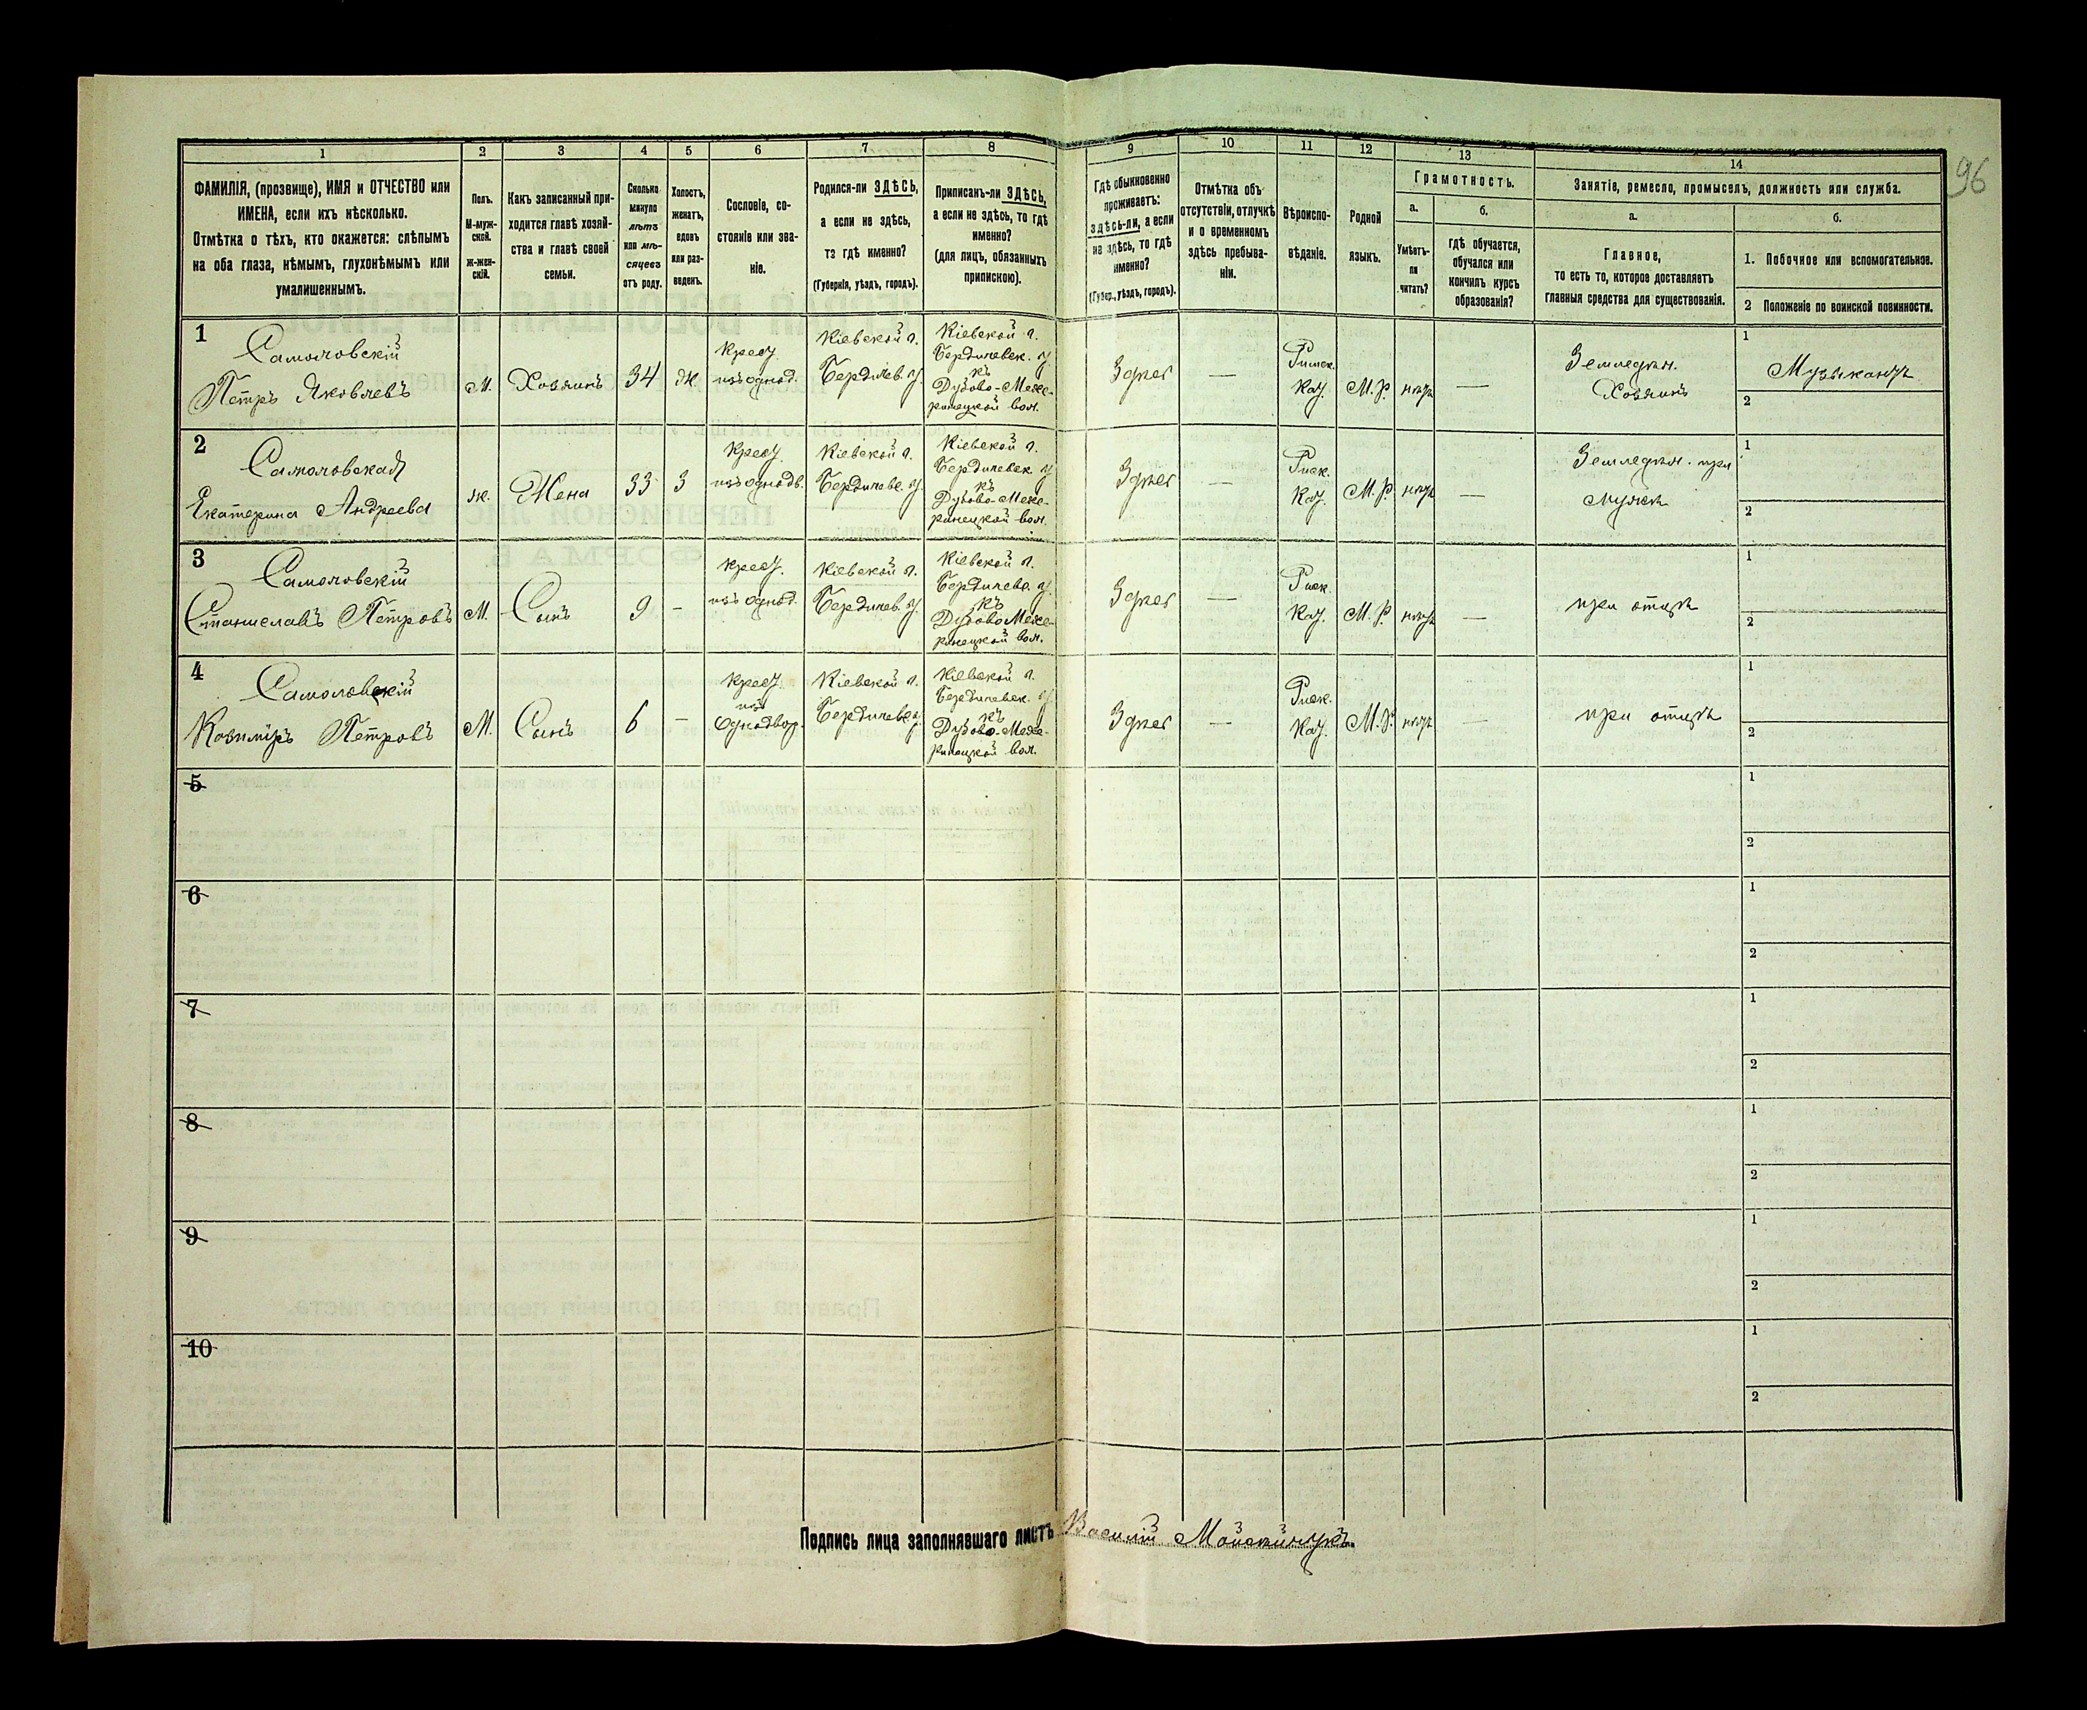 96
1 2 3 4 5 6 7 8 9 10 11 12 13 14
ФАМИЛІЯ, (прозвище), ИМЯ и ОТЧЕСТВО или
ИМЕНА, если ихъ нѣсколько.
Отмѣтка о тѣхъ, кто окажется: слѣпымъ
на оба глаза, нѣмымъ, глухонѣмымъ или
умалишеннымъ.
Полъ.
М-муж-
ской.
ж-жен-
скій.
Какъ записанный при-
ходится главѣ хозяй-
ства и главѣ своей
семьи.
Сколько
минуло
лѣтъ
или мѣ-
сяцевъ
отъ роду.
Холостъ,
женатъ,
вдовъ
или раз-
веденъ.
Сословіе, со-
стояніе или зва-
ніе.
Родился-ли ЗДѢСЬ,
а если не здѣсь,
то гдѣ именно?
(Губернія, уѣздъ, городъ).
Приписанъ-ли ЗДѢСЬ,
а если не здѣсь, то гдѣ
именно?
(для лицъ, обязанныхъ
припискою).
Гдѣ обыкновенно
проживаетъ:
здѣсь-ли, а если
не здѣсь, то гдѣ
именно?
(Губер., уѣздъ, городъ).
Отмѣтка объ
отсутствіи, отлучкѣ
и о временномъ
здѣсь пребыва-
ніи.
Вѣроиспо-
вѣданіе.
Родной
языкъ.
Грамотность.
а.
Умѣетъ-
ли
читать?
б.
гдѣ обучается,
обучался или
кончилъ курсъ
образованія?
Занятіе, ремесло, промыселъ, должность или служба.
а.
Главное,
то есть то, которое доставляетъ
главныя средства для существованія.
б.
1. Побочное или вспомогательное.
2 Положеніе по воинской повинности.
1
Самоловскій
Петръ Яковлевъ
М.
Хозяинъ
34
Ж
Крест.
изъ однод.
Кіевской г.
Бердичев. у.
Кіевской г.
Бердичевск. у.
къ
Дубово-Меже-
ринецкой вол.
Здѣсь
—
Римск.
Кат.
М. Р.
нѣтъ
—
Земледѣл.
Хозяинъ
1
Музыкантъ
2
2
Самоловская
Екатерина Андреева
ж.
Жена
33
З
Крест.
изъ однодв.
Кіевской г.
Бердичевс. у.
Кіевской г.
Бердичевск. у.
къ
Дубово-Меже-
ринецкой вол.
Здѣсь
—
Риск.
Кат.
М. Р.
нѣтъ
—
Земледѣл. при
мужѣ
1
2
3
Самоловскій
Станиславъ Петровъ
М.
Сынъ
9
-
Крест.
изъ однод.
Кіевской г.
Бердичев. у.
Кіевской г.
Бердичевс. у.
къ
Дубово Меже-
ринецкой вол.
Здѣсь
—
Риск.
Кат.
М. Р.
нѣтъ
—
при отцѣ
1
2
4
Самоловскій
Козиміръ Петровъ
М.
Сынъ
6
-
Крест.
изъ
Однодвор.
Кіевской г.
Бердичевс. у.
Кіевской г.
Бердичевск. у.
къ
Дубово-Меже-
ринецкой вол.
Здѣсь
—
Риск.
Кат.
М. Р.
нѣтъ
—
при отцѣ
1
2
5
1
2
6
1
2
7
1
2
8
1
2
9
1
2
10
1
2
Подпись лица заполнявшаго листъ Василій